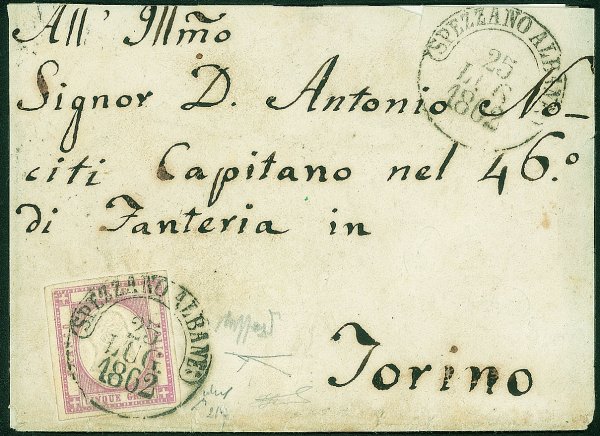 All' Illmo
Signor D. Antonio No-
citi Capitano nel 46.º
di Fanteria in
Torino
SPEZZANO ALBANESE
25
LUG
1862
SPEZZANO ALBANESE
25
LUG
1862
CINQUE GR